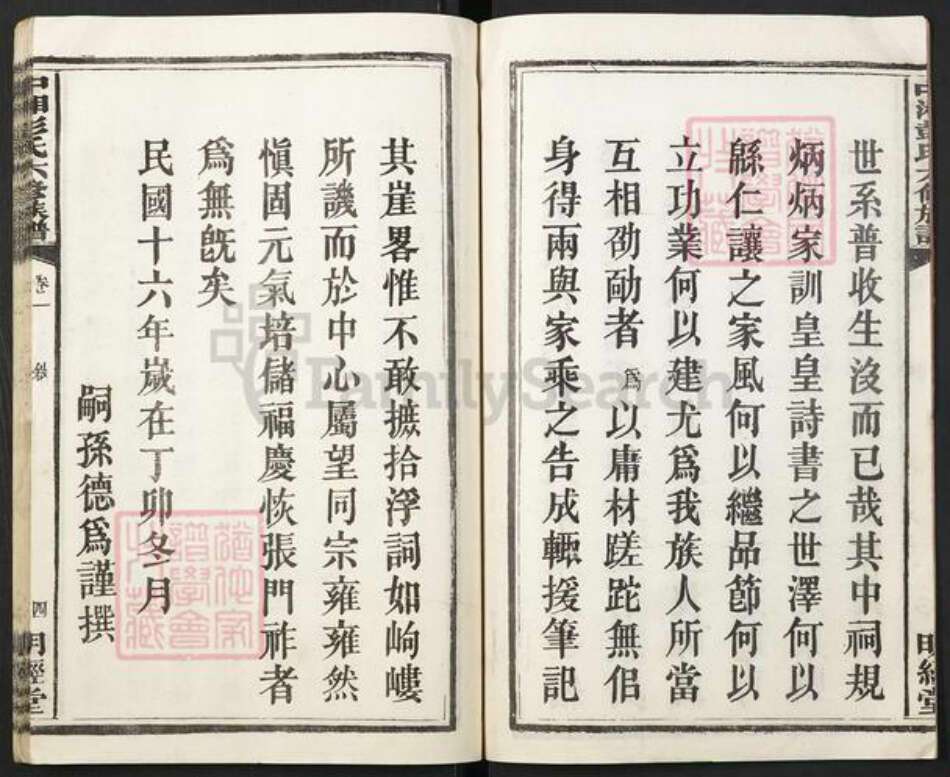 世系普收生沒而已哉其中祠規
炳炳家訓皇皇詩書之世澤何以
緜仁讓之家風何以繼品節何以
立功業何以建尤爲我族人所當
互相劭勔者爲以庸材蹉跎無侣
身得兩與家乘之告成輙援筆記
其崖畧惟不敢摭拾浮詞如岣嶁
所譏而於中心屬望同宗雍雍然
愼固元氣培儲福慶恢張門祚者
爲無旣矣
民國十六年歲在丁卯冬月
嗣孫德爲謹撰
中湘彭氏六修族譜
卷一
四
明經堂
FamilySearch